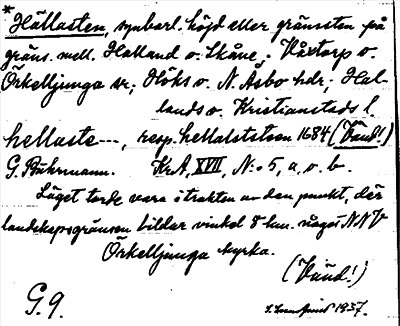 * Hällasten, synbarl. höjd eller gränssten på
gräns. mell. Halland o. Skåne; Våxtorp o.
Örkelljunga sr; Höks o. N. Åsbo hdr; Hal-
lands o. Kristianstads l.
hellaste---, resp. hellalstetsen 1684 (Vänd!)
G. Buhrmann. KrA, XVII, N:o 5, a, o. b.
Läget torde vara i trakten av den punkt, där
landskapsgränsen bildar vinkel 8 km. något NNV
Örkelljunga kyrka.
(Vänd!)
G. 9. 1937.